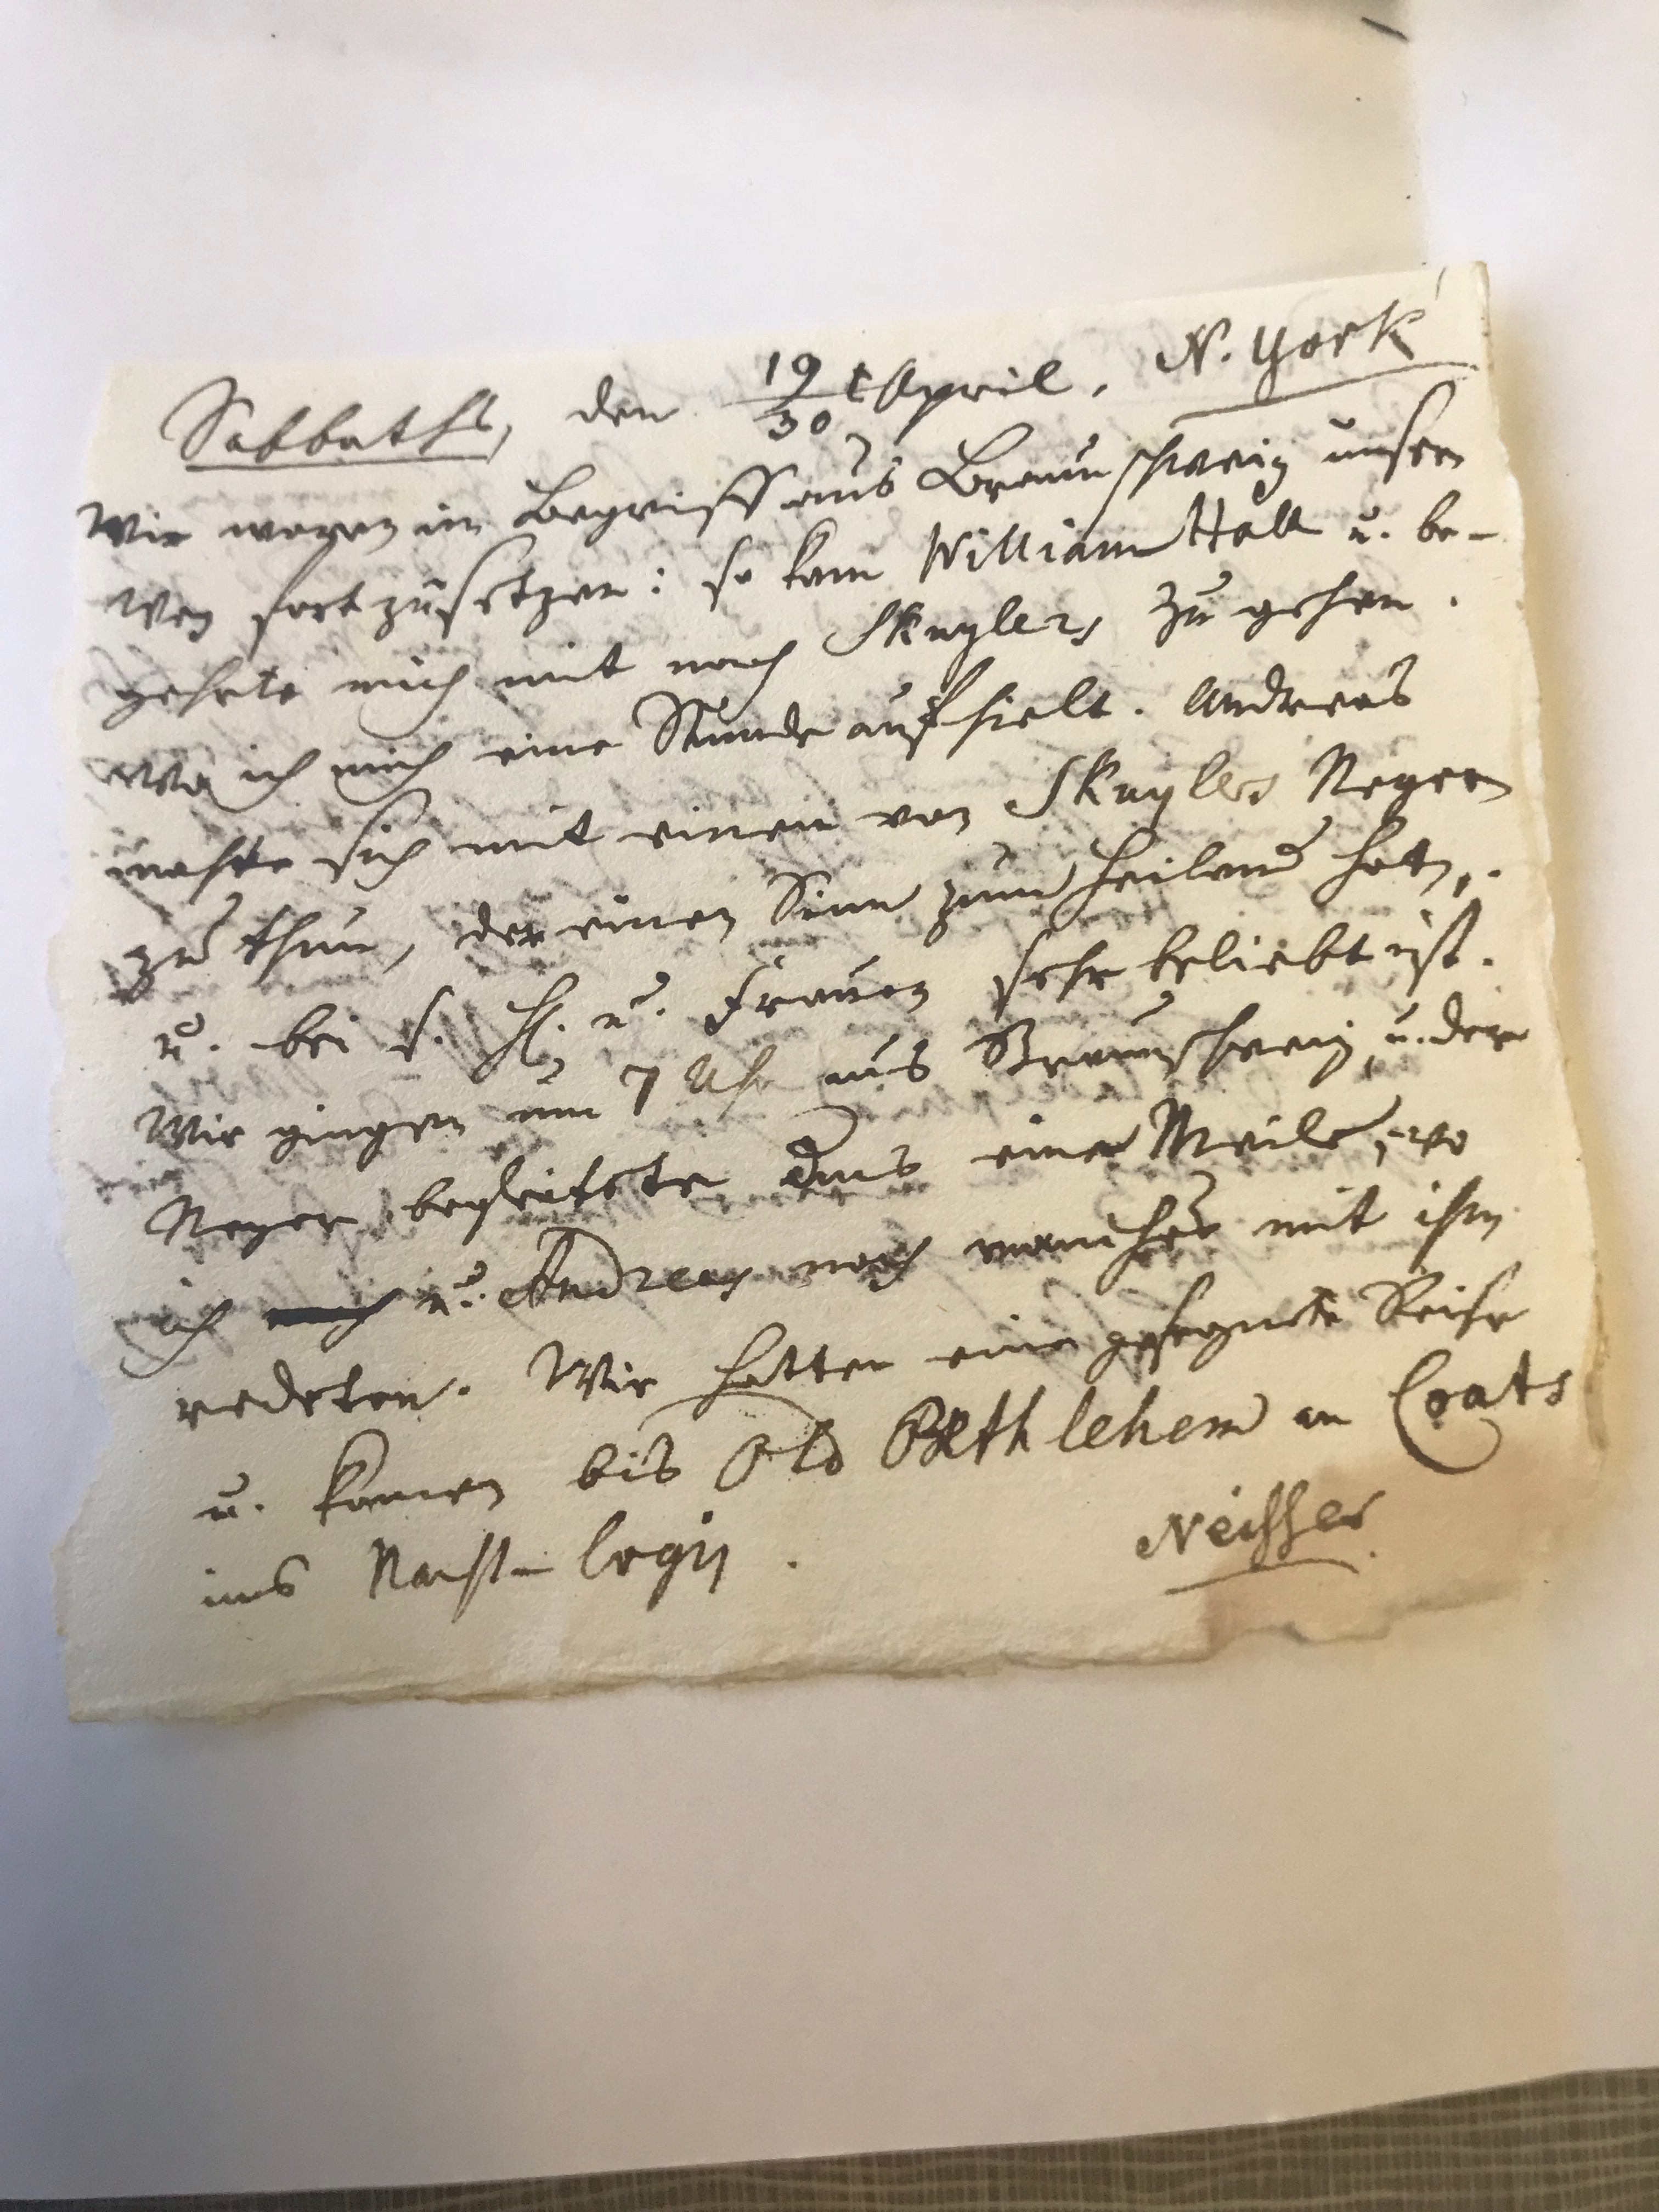 Sabbaths, den 19/30 t April. N. York
Wir waren im Begriff aus Braunschweig unsern
Weg fortzusetzen: so kam William Hall u. be-
gehrte mich mit nach Skuylers zu gehen.
wo ich mich eine Stunde aufhielt. Andreas
machte sich mit einem von Skuylers Negern
zu thun, der einen Sinn zum Heiland hat,
u. bei s. H. u. Frauen sehr beliebt ist.
Wir gingen um 7 Uhr aus Braunschweig u. der
Neger begleitete uns eine Meile, wo
ich u. Andreas noch manches mit ihm
redeten. Wir hatten eine gesegnete Reise
u. kamen bis Old Bethlehem an Coats
ins Nacht-logis.
Neisser